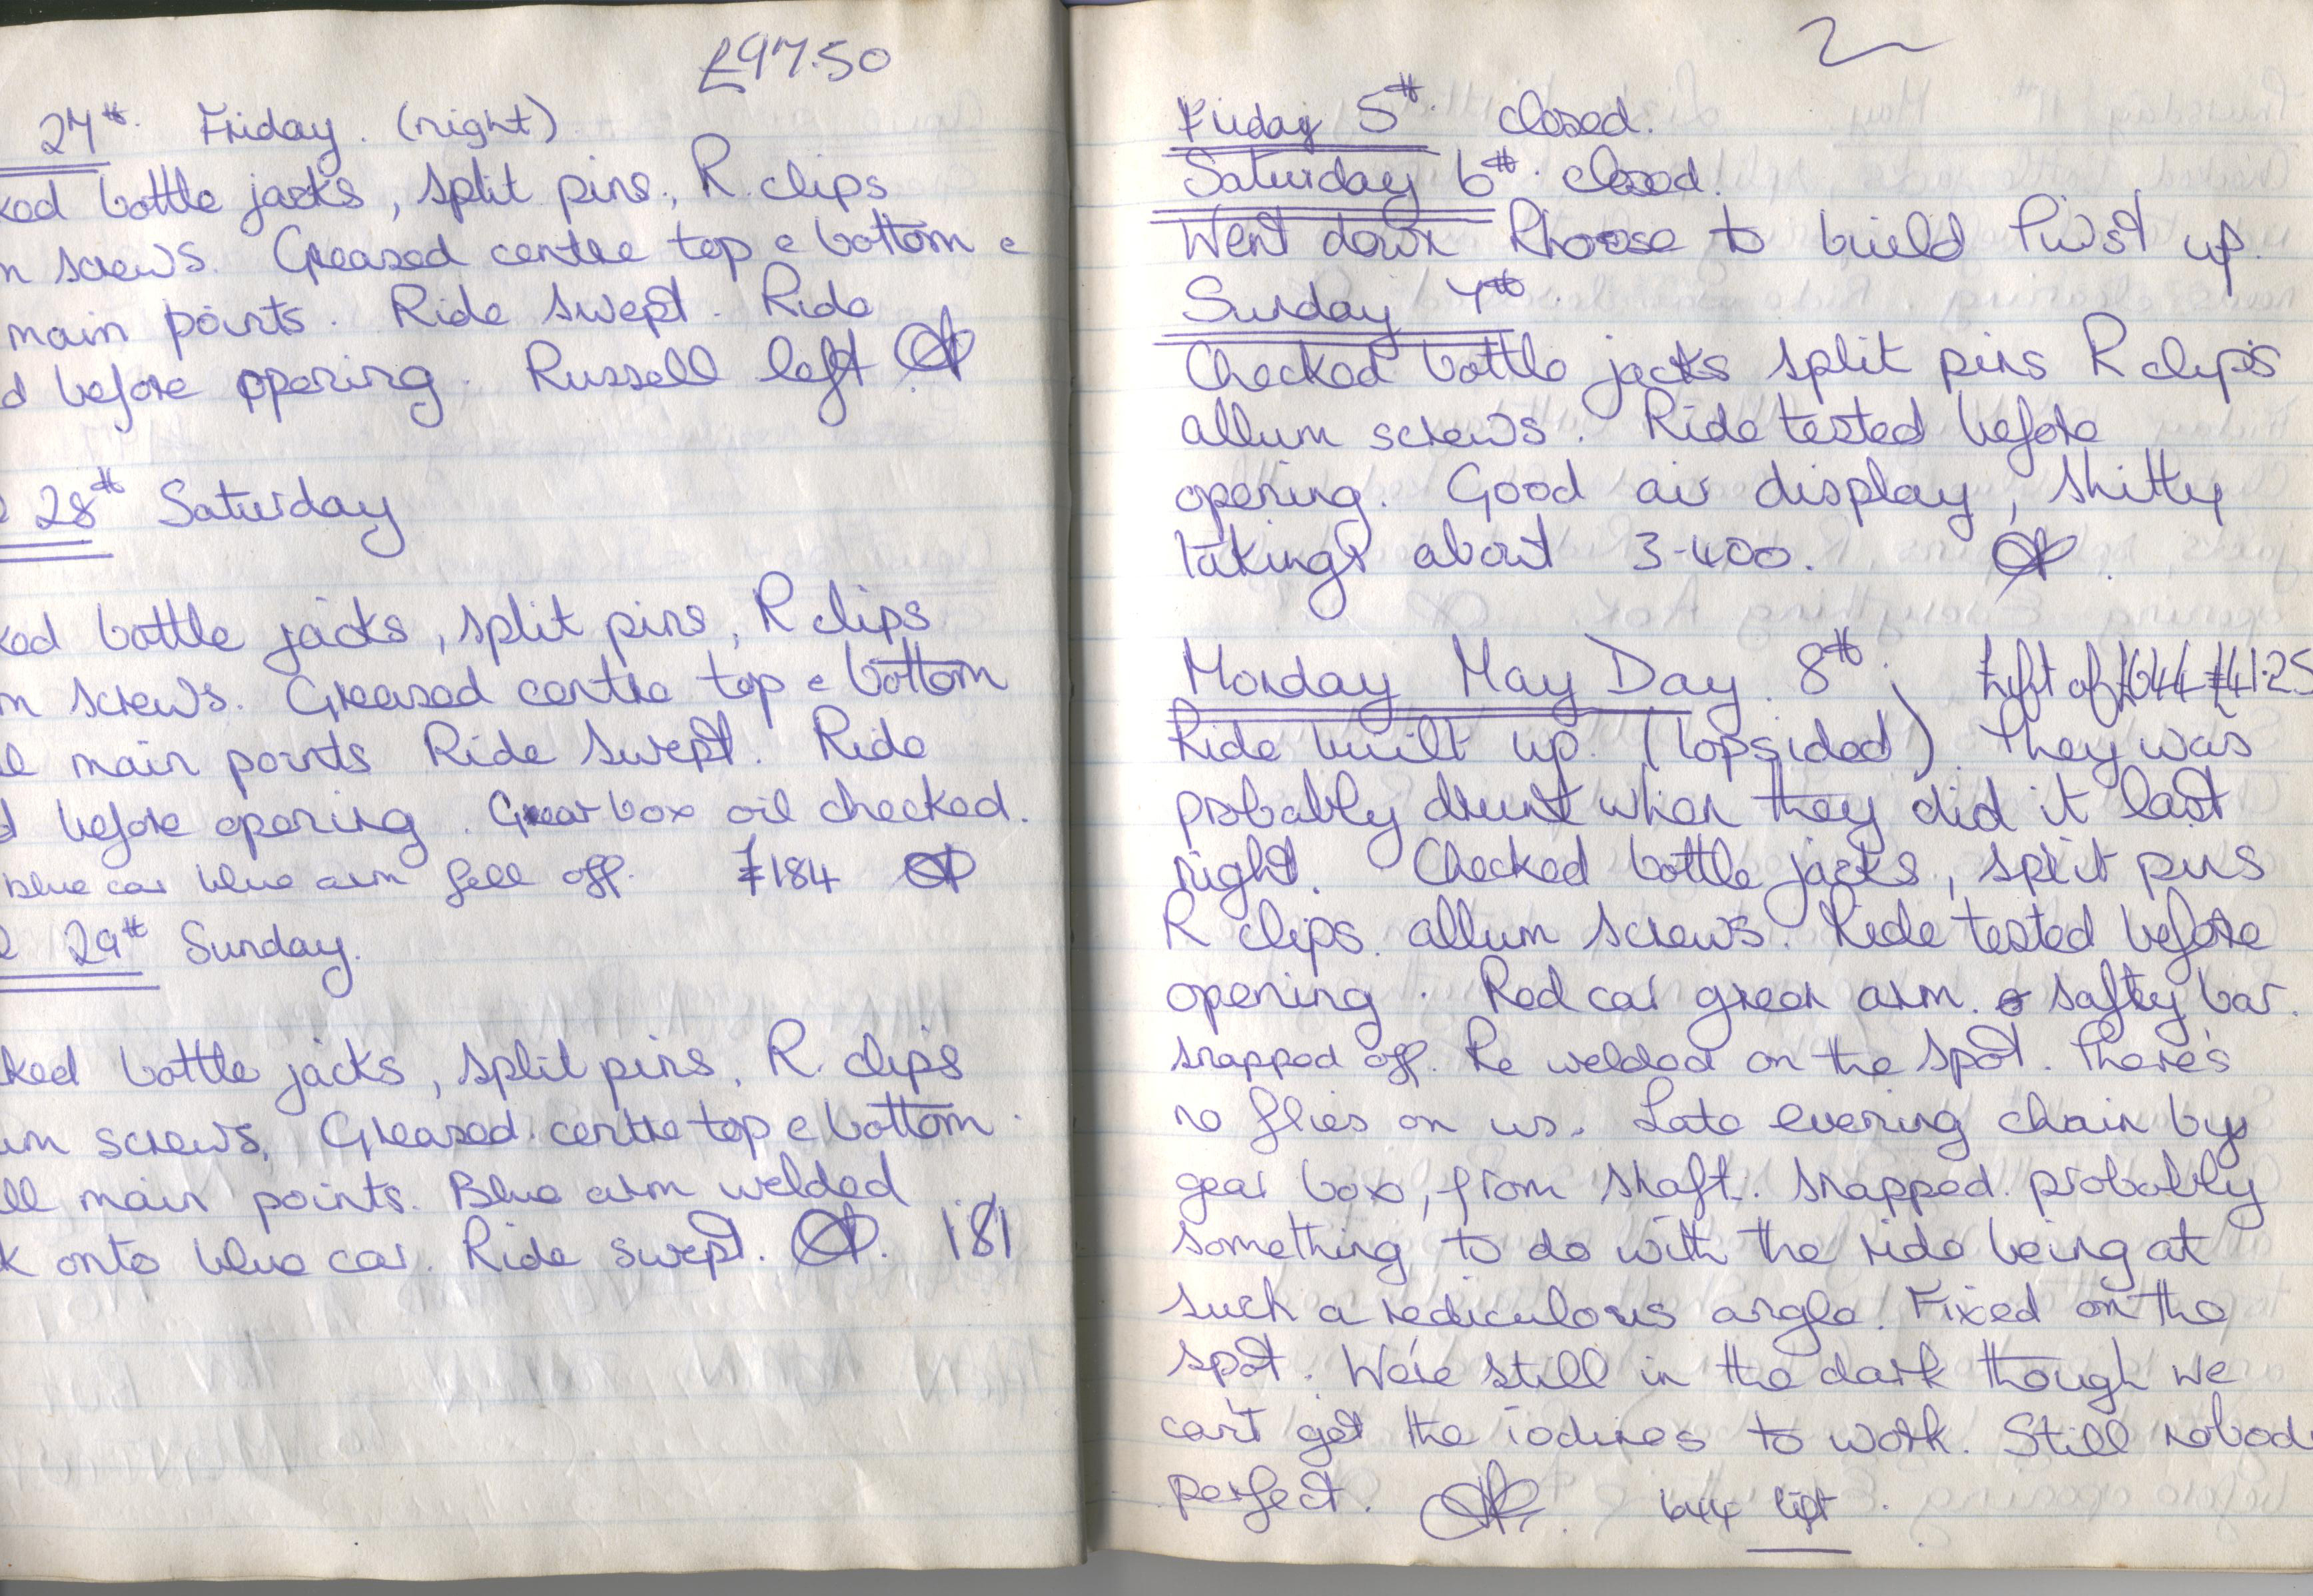 £97.50
27th. Friday. (night)
ked bottle jacks, split pins, R. clips
n screws. Greased centre top & bottom &
main points. Ride swept. Ride
d before opening. Russell left
28th Saturday
ked bottle jacks, split pins, R clips
m screws. Greased centre top & bottom
ll main points Ride swept. Ride
d before opening. Gear box oil checked.
Blue car blue arm fell off. £184
29th Sunday.
ked bottle jacks, split pins, R. clips
um screws. Greased centre top & bottom.
ll main points. Blue arm welded
k onto blue car. Ride swept. 181
2
Friday 5th. closed.
Saturday 6th. closed.
Went down Rhoose to build Twist up.
Sunday 7th.
Checked bottle jacks split pins R clips
allum screws. Ride tested before
opening. Good air display, shitty
takings about 3-400.
Monday May Day. 8th. Left of £644 £41.25
Ride built up. (lopsided). They was
probably drunk when they did it last
night. Checked bottle jacks, split pins
R clips. allum screws. Ride tested before
opening. Red car green arm. safty bar.
snapped off. Re welded on the spot. There's
no flies on us. Late evening chain by
gear box, from shaft. snapped. probably
something to do with the ride being at
such a rediculous angle. Fixed on the
spot. We're still in the dark though we
can't get the iodines to work. Still nobod
perfect. 644 left.